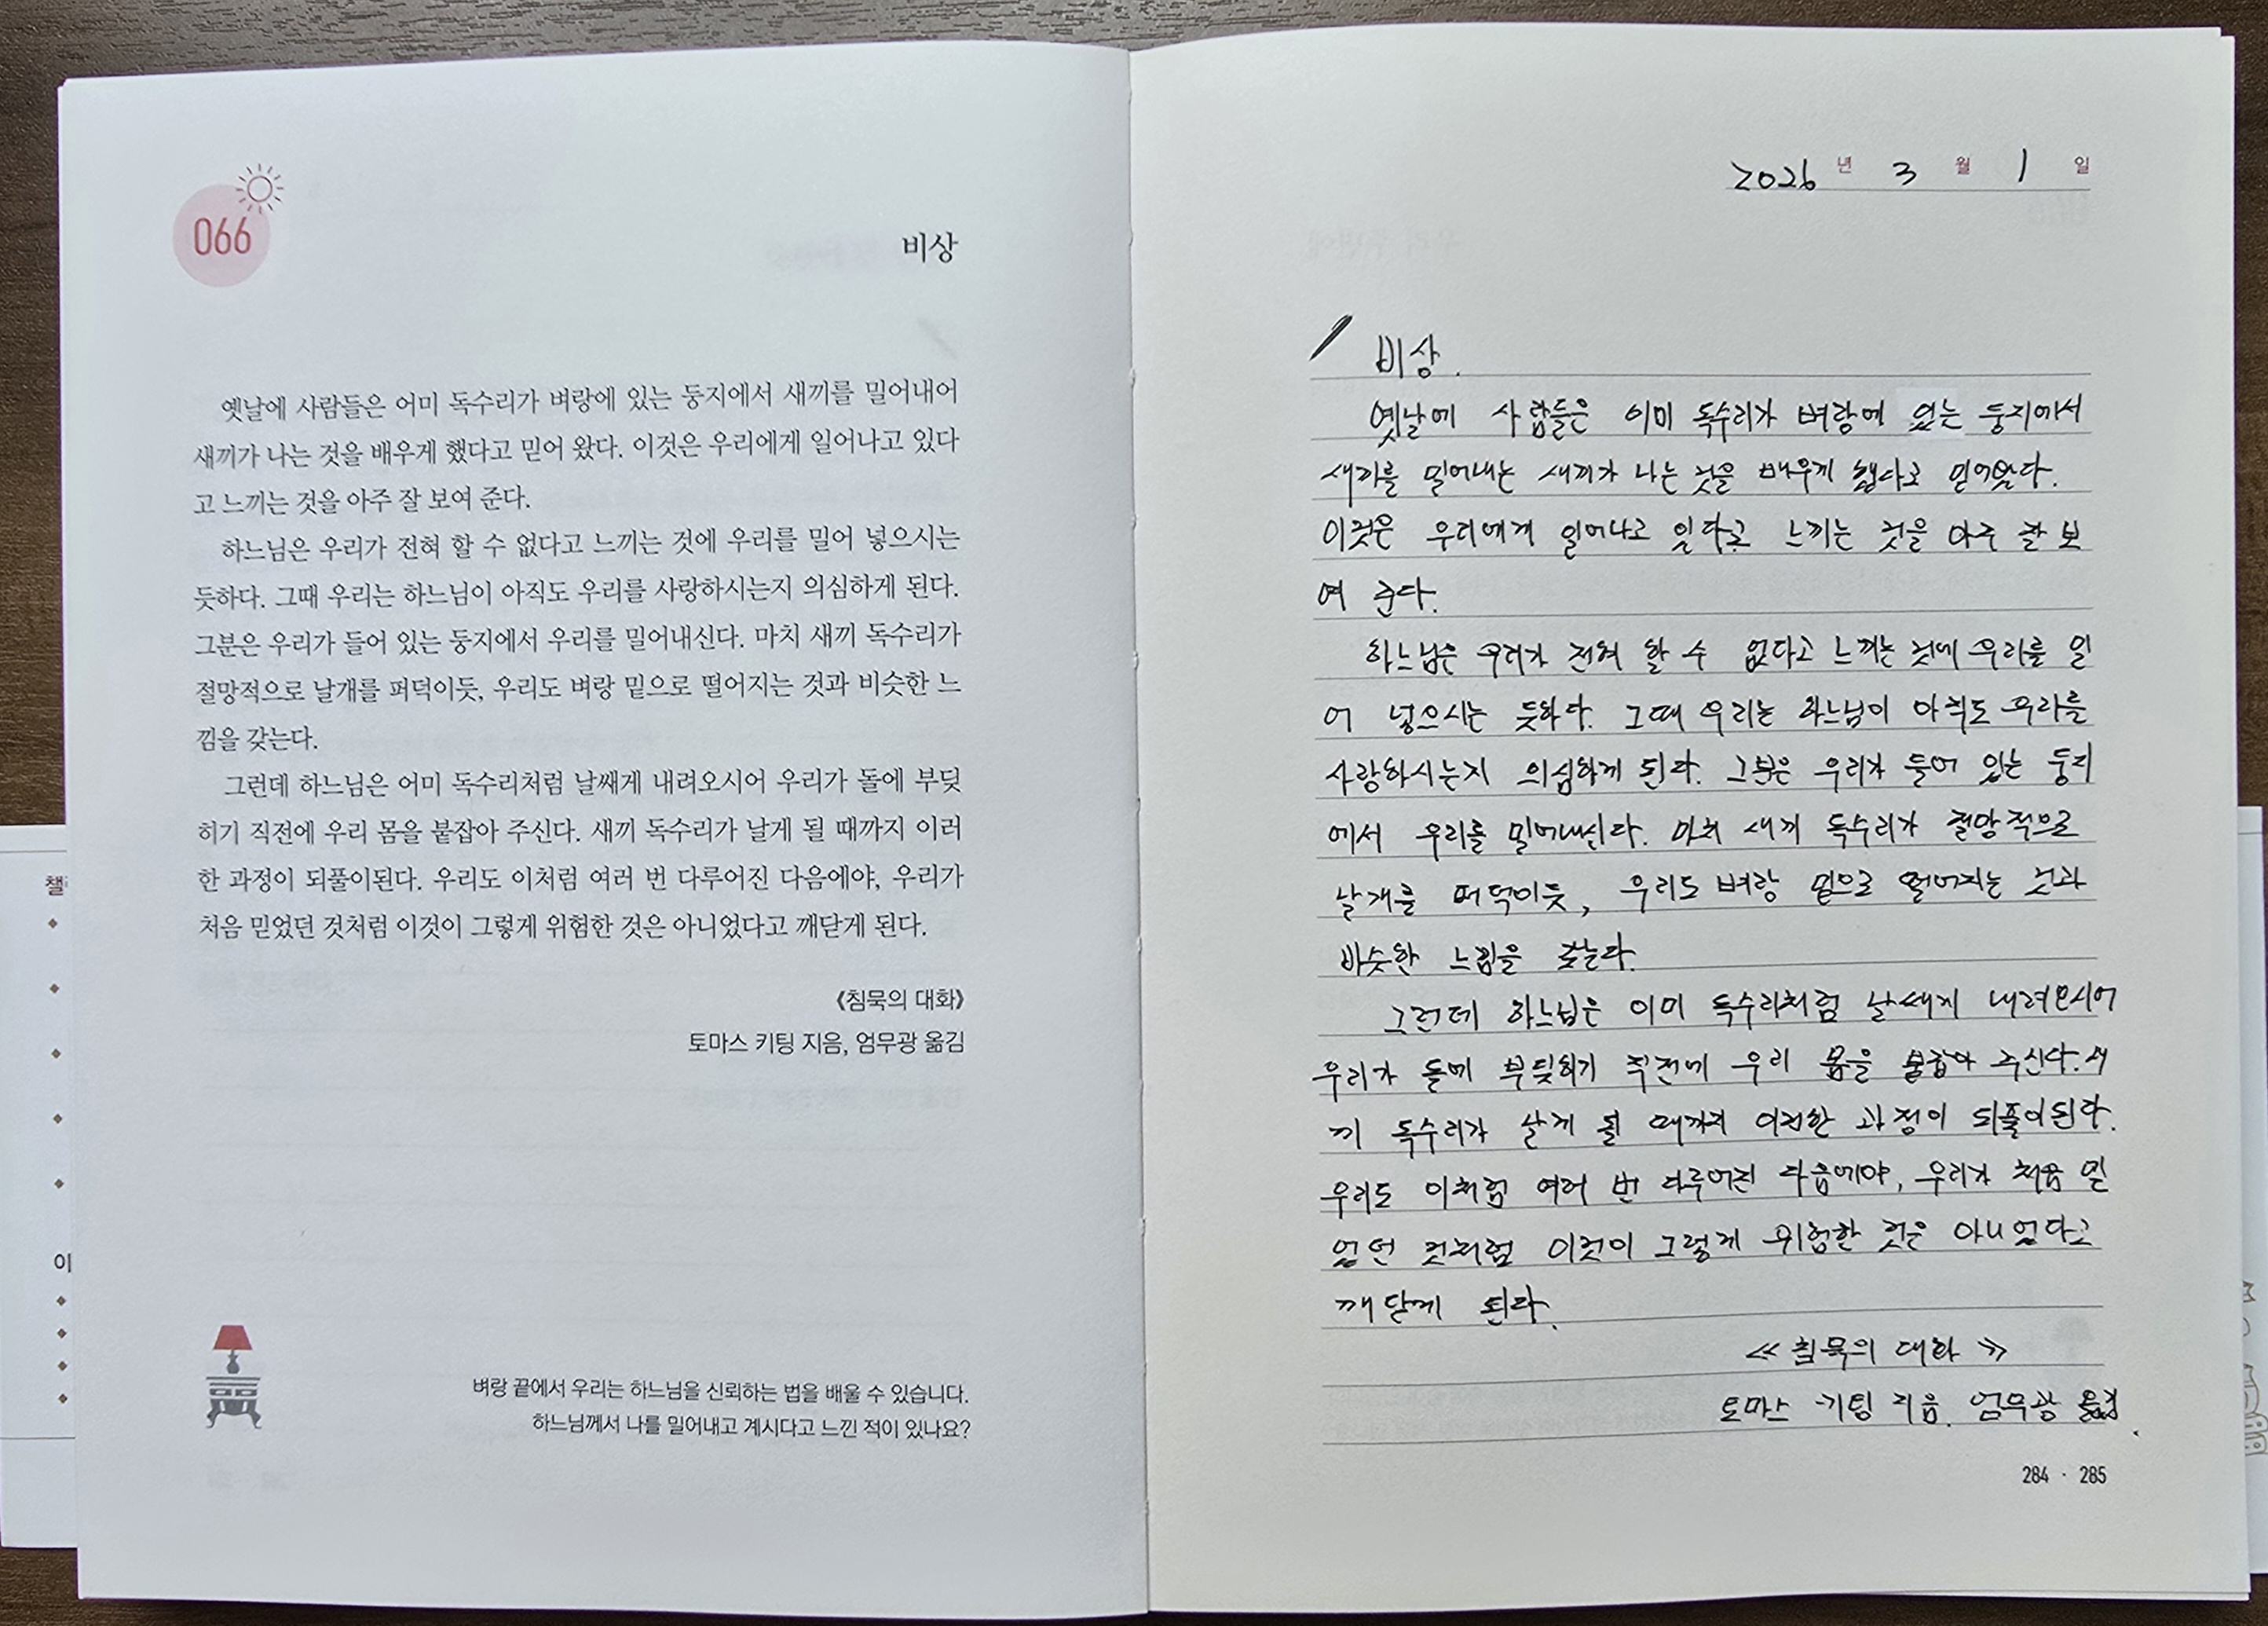 066
비상
옛날에 사람들은 어미 독수리가 벼랑에 있는 둥지에서 새끼를 밀어내어
새끼가 나는 것을 배우게 했다고 믿어 왔다. 이것은 우리에게 일어나고 있다
고 느끼는 것을 아주 잘 보여 준다.
하느님은 우리가 전혀 할 수 없다고 느끼는 것에 우리를 밀어 넣으시는
듯하다. 그때 우리는 하느님이 아직도 우리를 사랑하시는지 의심하게 된다.
그분은 우리가 들어 있는 둥지에서 우리를 밀어내신다. 마치 새끼 독수리가
절망적으로 날개를 퍼덕이듯, 우리도 벼랑 밑으로 떨어지는 것과 비슷한 느
낌을 갖는다.
그런데 하느님은 어미 독수리처럼 날쌔게 내려오시어 우리가 돌에 부딪
히기 직전에 우리 몸을 붙잡아 주신다. 새끼 독수리가 날게 될 때까지 이러
한 과정이 되풀이된다. 우리도 이처럼 여러 번 다루어진 다음에야, 우리가
처음 믿었던 것처럼 이것이 그렇게 위험한 것은 아니었다고 깨닫게 된다.
《침묵의 대화》
토마스 키팅 지음, 엄무광 옮김
벼랑 끝에서 우리는 하느님을 신뢰하는 법을 배울 수 있습니다.
하느님께서 나를 밀어내고 계시다고 느낀 적이 있나요?
챌
이
2026 년 3 월 1 일
비상.
옛날에 사람들은 어미 독수리가 벼랑에 있는 둥지에서
새끼를 밀어내는 새끼가 나는 것을 배우게 했다고 믿어왔다.
이것은 우리에게 일어나고 있다고 느끼는 것을 아주 잘 보
여 준다.
하느님은 우리가 전혀 할 수 없다고 느끼는 것에 우리를 밀
어 넣으시는 듯하다. 그때 우리는 하느님이 아직도 우리를
사랑하시는지 의심하게 된다. 그분은 우리가 들어 있는 둥지
에서 우리를 밀어내신다. 마치 새끼 독수리가 절망적으로
날개를 퍼덕이듯, 우리도 벼랑 밑으로 떨어지는 것과
비슷한 느낌을 갖는다.
그런데 하느님은 어미 독수리처럼 날쌔게 내려오시어
우리가 돌에 부딪히기 직전에 우리 몸을 붙잡아 주신다. 새
끼 독수리가 날게 될 때까지 이러한 과정이 되풀이된다.
우리도 이처럼 여러 번 다루어진 다음에야, 우리가 처음 믿
었던 것처럼 이것이 그렇게 위험한 것은 아니었다고
깨닫게 된다.
≪ 침묵의 대화 ≫
토마스 키팅 지음. 엄무광 옮김.
284 · 285